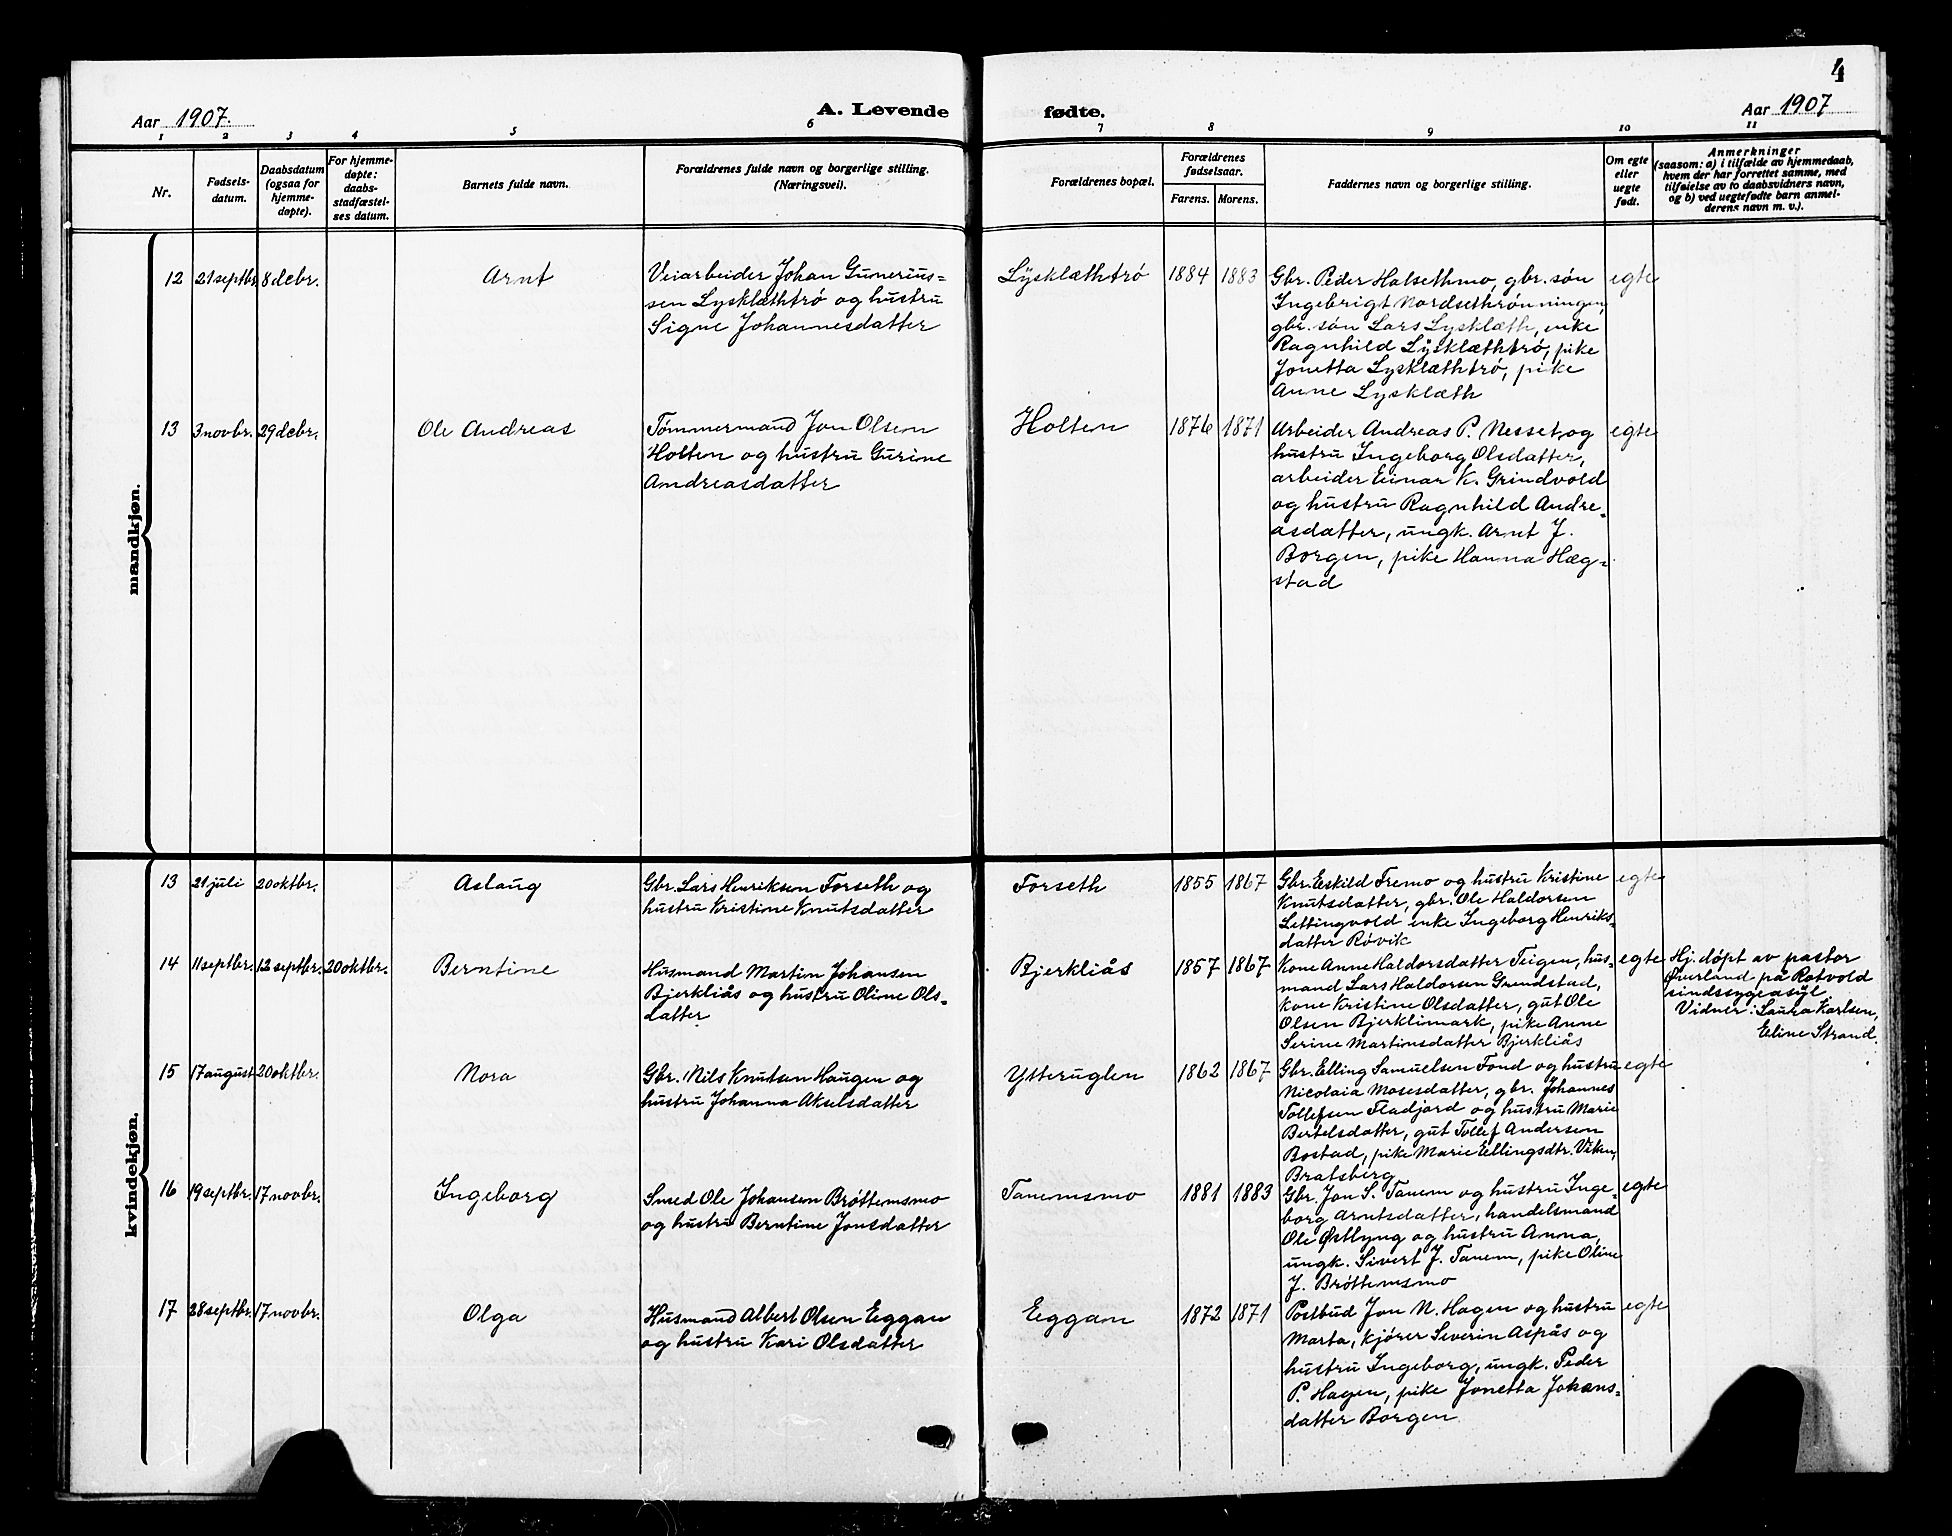 4
Aar 1907.
A. Levende
fødte.
Aar 1907
1 2 3 4 5 6 7 8 9 10 11
Nr.
Fødsels-
datum.
Daabsdatum
(ogsaa for
hjemme-
døpte).
For hjemme-
døpte:
daabs-
stadfæstel-
ses datum.
Barnets fulde navn.
Forældrenes fulde navn og borgerlige stilling.
(Næringsvei).
Forældrenes bopæl.
Forældrenes
fødselsaar.
Farens. Morens.
Faddernes navn og borgerlige stilling.
Om egte
eller
uegte
født.
Anmerkninger
(saasom: a) i tilfælde av hjemmedaab,
hvem der har forrettet samme, med
tilføielse av to daabsvidners navn,
og b) ved uegtefødte barn anmel-
derens navn m. v.).
mandkjøn.
12 21 septbr. 8 debr. Arnt
Veiarbeider Johan Gunerius-
sen Lysklæthtrø og hustru
Signe Johannesdatter
Lysklæthtrø 1884 1883
Gbr. Peder Halsethmo, gbr. søn
Ingebrigt Nordsethrønningen,
gbr. søn Lars Lysklæth, enke
Ragnhild Lysklæthtrø, pike
Jonetta Lysklæthtrø, pike
Anne Lysklæth
egte
13 3 novbr. 29 debr. Ole Andreas
Tømmermand Jon Olsen
Holten og hustru Gurine
Andreasdatter
Holten 1876 1871
Arbeider Andreas P. Nesset og
hustru Ingeborg Olsdatter,
arbeider Einar K. Grindvold
og hustru Ragnhild Andre-
asdatter, ungk. Arnt J.
Borgen, pike Hanna Hæg-
stad
egte
kvindekjøn.
13 21 juli 20 oktbr. Aslaug
Gbr. Lars Henriksen Forseth og
hustru Kristine Knutsdatter
Forseth 1855 1867
Gbr. Eskild Fremo og hustru Kristine
Knutsdatter, gbr. Ole Haldorsen
Lettingvold enke Ingeborg Henriks-
datter Røvik
egte
14 11 septbr. 12 septbr. 20 oktbr. Berntine
Husmand Martin Johansen
Bjerkliås og hustru Oline Ols-
datter
Bjerkliås 1857 1867
Kone Anne Haldorsdatter Teigen, hus-
mand Lars Haldorsen Grendstad,
kone Kristine Olsdatter, gut Ole
Olsen Bjerklimark, pike Anne
Serine Martinsdatter Bjerkliås
egte
Hj. døpt av pastor
Øverland på Rotvold
sindssygeasyl
Vidner: Laura Karlsen,
Eline Strand.
15 17 august 20 oktbr. Nora
Gbr. Nils Knutsen Haugen og
hustru Johanna Akselsdatter
Ytteruglen 1862 1867
Gbr. Elling Samuelsen Fond og hustru
Nicolaia Mosesdatter, gbr. Johannes
Tollefsen Fladjord og hustru Marie
Bertelsdatter, gut Tollef Andersen
Bostad, pike Marie Ellingsdtr. Viken,
Bratsberg
egte
16 19 septbr. 17 novbr. Ingeborg
Smed Ole Johansen Brøttemsmo
og hustru Berntine Jonsdatter
Tanemsmo 1881 1883
Gbr. Jon S. Tanem og hustru Inge-
borg Arntsdatter, handelsmand
Ole Østlyng og hustru Anna,
ungk. Sivert J. Tanem, pike Oline
J. Brøttemsmo
egte
17 28 septbr. 17 novbr. Olga
Husmand Albert Olsen Eggan
og hustru Kari Olsdatter
Eggan 1872 1871
Postbud Jon N. Hagen og hustru
Marta, kjører Severin Aspås og
hustru Ingeborg, ungk. Peder
P. Hagen, pike Jonetta Johans-
datter Borgen
egte